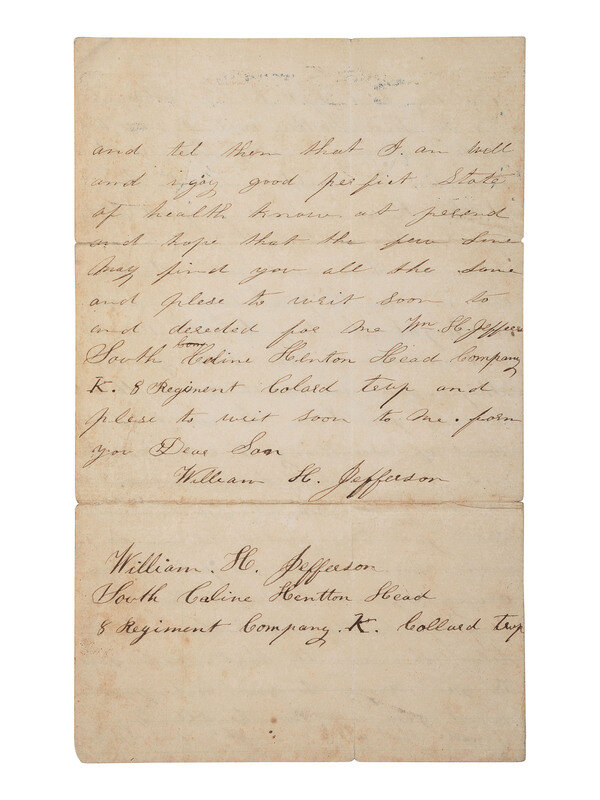 and tel them that I am well
and ijoy good perfict State
of health know at presnd
and hope that the few line
May find you all the Same
and plese to writ soon to
and derected for me Wm. H. Jeffers
South Caline Henton Head Company
K. 8 Regiment Colard trup and
plese to writ soon to me. from
you Dear Son
William H. Jefferson
William. H. Jefferson
South Caline Hentton Head
8 Regiment Company. K. Collard trup